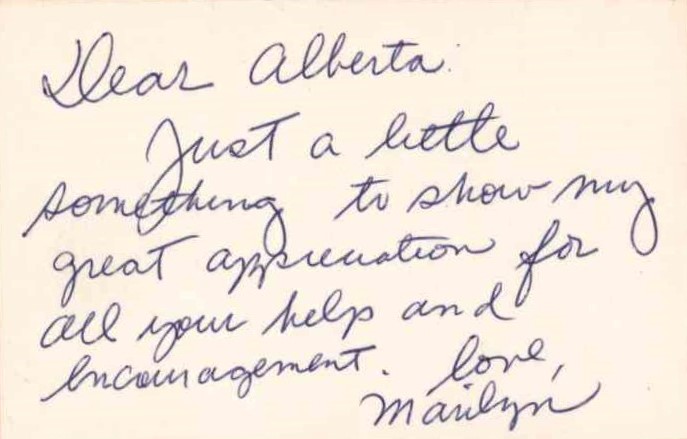 Dear Alberta:
Just a little
something to show my
great appreciation for
all your help and
encouragement. Love,
Marilyn